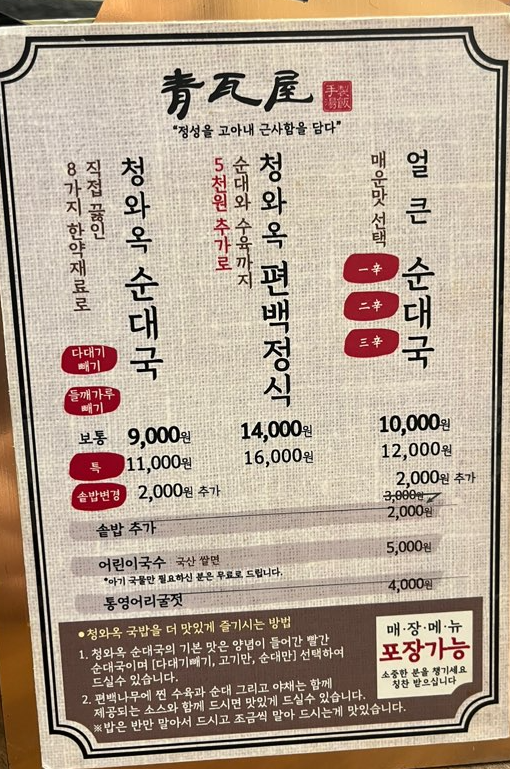 青瓦屋
手製
湯飯
"정성을 고아내 근사함을 담다"
얼큰 순대국
매운맛 선택
一辛
二辛
三辛
청와옥 편백정식
순대와 수육까지
5천원 추가로
청와옥 순대국
직접 끓인
8가지 한약재료로
다대기
빼기
들깨가루
빼기
보통 9,000원 14,000원 10,000원
특 11,000원 16,000원 12,000원
솥밥변경 2,000원 추가 2,000원 추가
3,000원
솥밥 추가 2,000원
어린이국수 국산 쌀면 5,000원
*아기 국물만 필요하신 분은 무료로 드립니다.
통영어리굴젓 4,000원
●청와옥 국밥을 더 맛있게 즐기시는 방법
1. 청와옥 순대국의 기본 맛은 양념이 들어간 빨간
순대국이며 [다대기빼기, 고기만, 순대만] 선택하여
드실수 있습니다.
2. 편백나무에 찐 수육과 순대 그리고 야채는 함께
제공되는 소스와 함께 드시면 맛있게 드실수 있습니다.
※밥은 반만 말아서 드시고 조금씩 말아 드시는게 맛있습니다.
매·장·메·뉴
포장가능
소중한 분을 챙기세요
칭찬 받으십니다